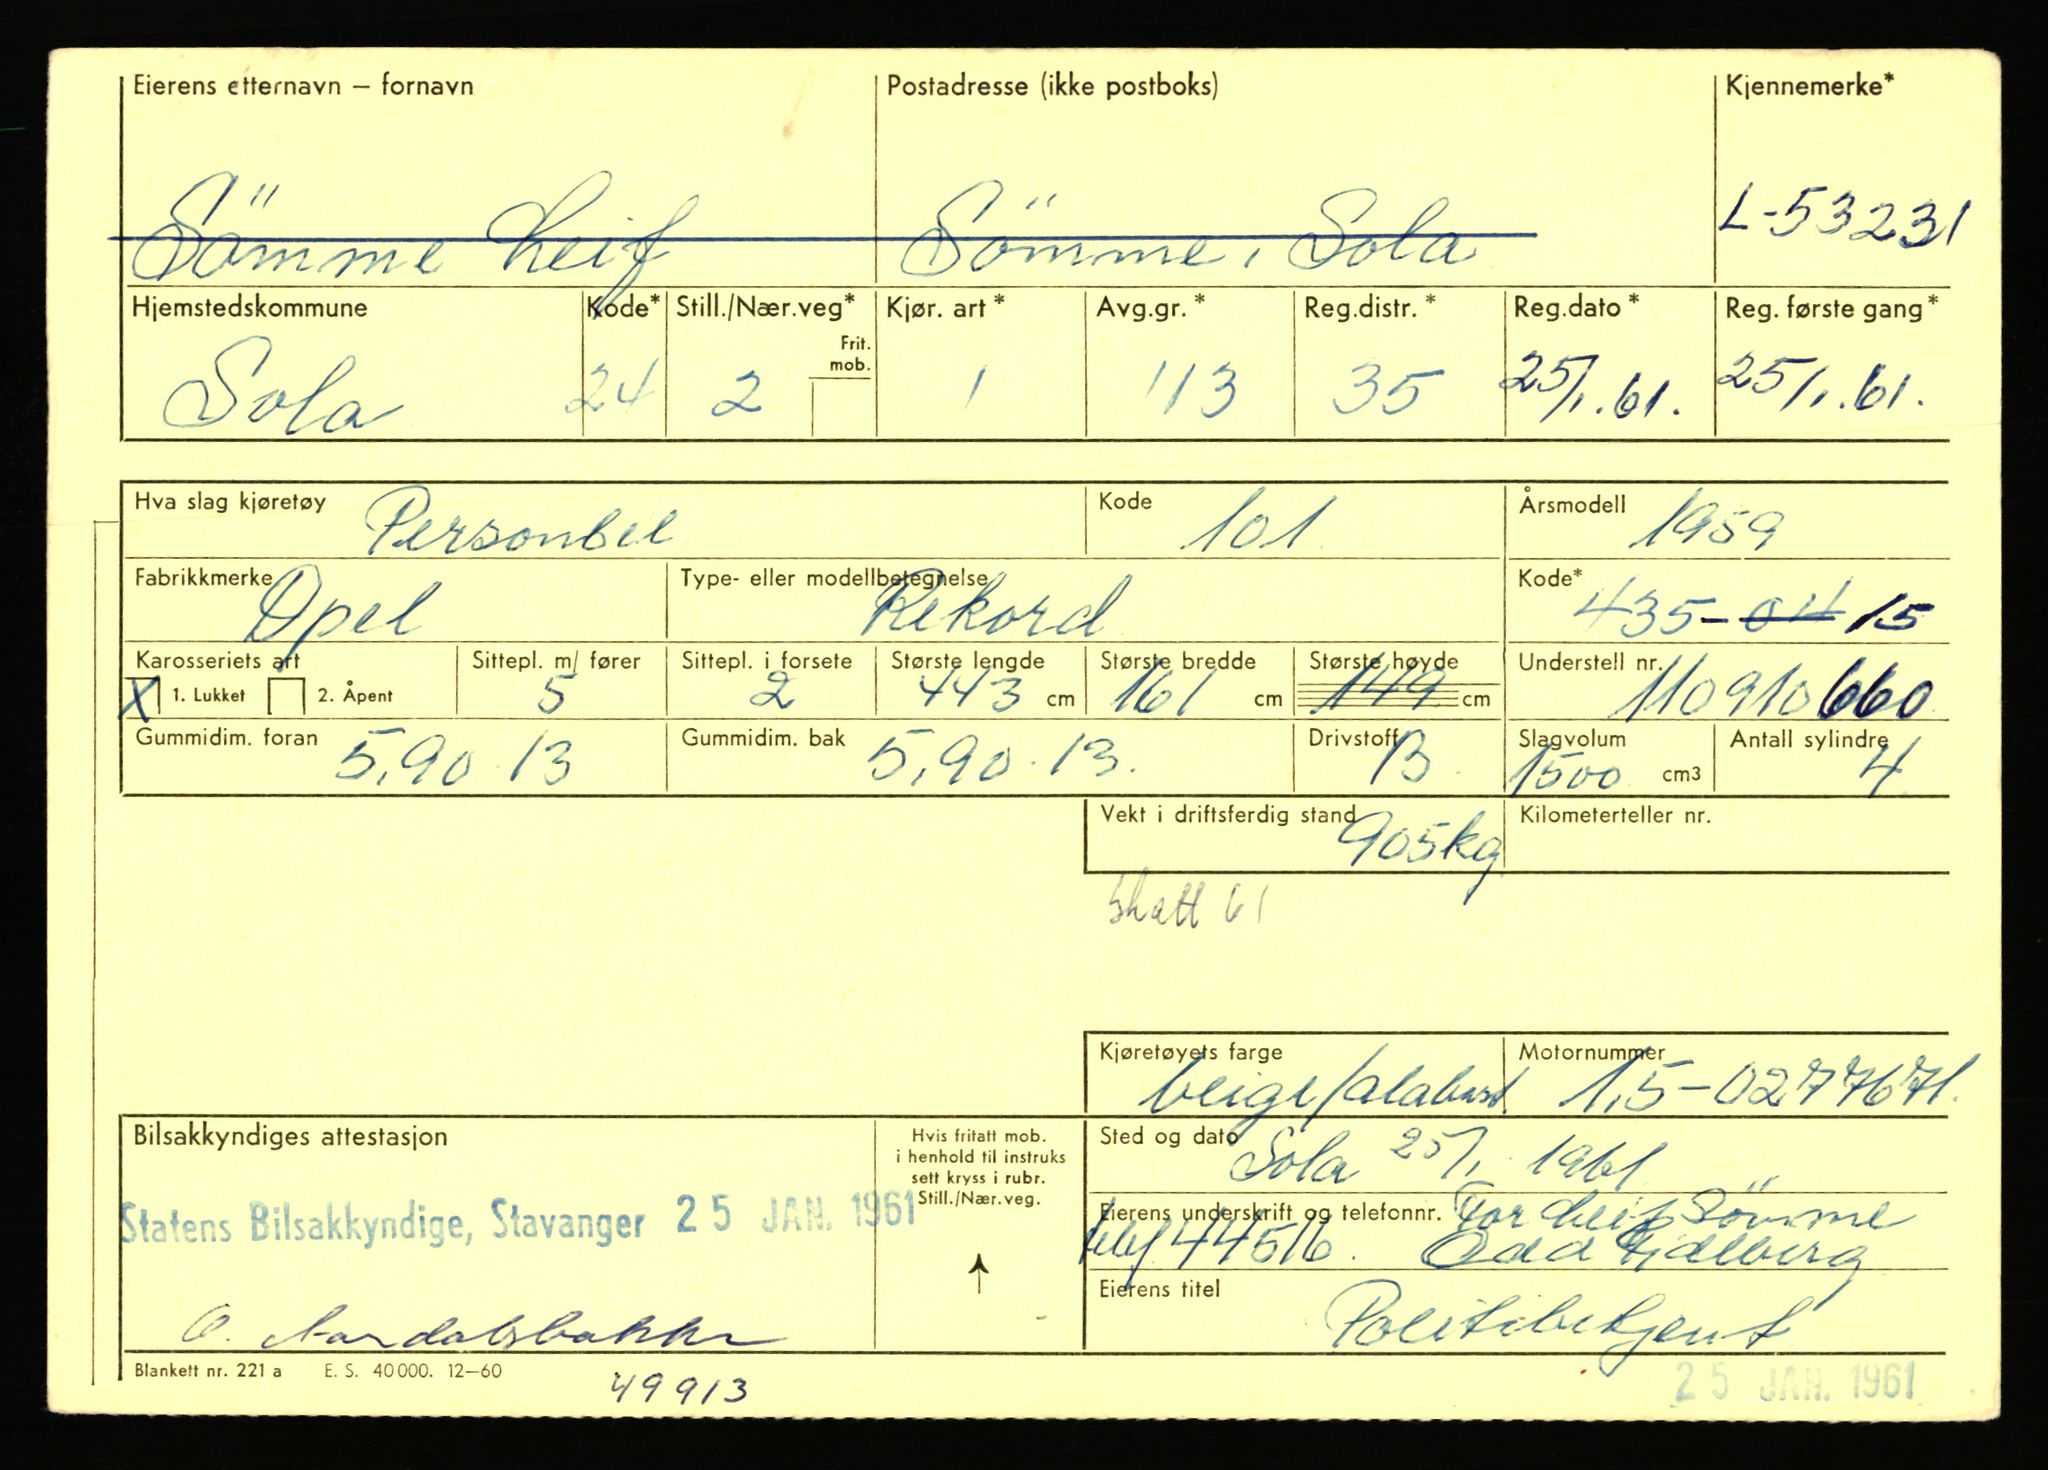 Eierens etternavn – fornavn Postadresse (ikke postboks) Kjennemerke*
Sömme Leif Sömme, Sola L-53231
Hjemstedskommune Kode* Still./Nær.veg* Kjør. art * Avg.gr. * Reg.distr. * Reg.dato * Reg. første gang *
Frit.
mob.
Sola 24 2 1 113 35 25/1.61. 25/1.61.
Hva slag kjøretøy Personbil Kode 101 Årsmodell 1959
Fabrikkmerke Opel Type- eller modellbetegnelse Rekord Kode* 435-04 15
Karosseriets art Sittepl. m/ fører Sittepl. i forsete Største lengde Største bredde Største høyde Understell nr.
X 1. Lukket 2. Åpent 5 2 443 cm 161 cm 149 cm 110910660
Gummidim. foran 5,90.13 Gummidim. bak 5,90.13. Drivstoff B Slagvolum 1500 cm3 Antall sylindre 4
Vekt i driftsferdig stand 905kg Kilometerteller nr.
Skatt 61
Kjøretøyets farge Motornummer
beige/alabast. 1,5-0277671.
Bilsakkyndiges attestasjon
Hvis fritatt mob.
i henhold til instruks
sett kryss i rubr.
Still./Nær.veg.
Sted og dato Sola 25/1. 1961
Statens Bilsakkyndige, Stavanger 25 JAN. 1961
Eierens underskrift og telefonnr. For Leif Sömme
tlf 44516. Odd
Eierens titel
Politibetjent
O. Nordalsbakke
Blankett nr. 221 a E. S. 40 000. 12–60
49913
25 JAN. 1961